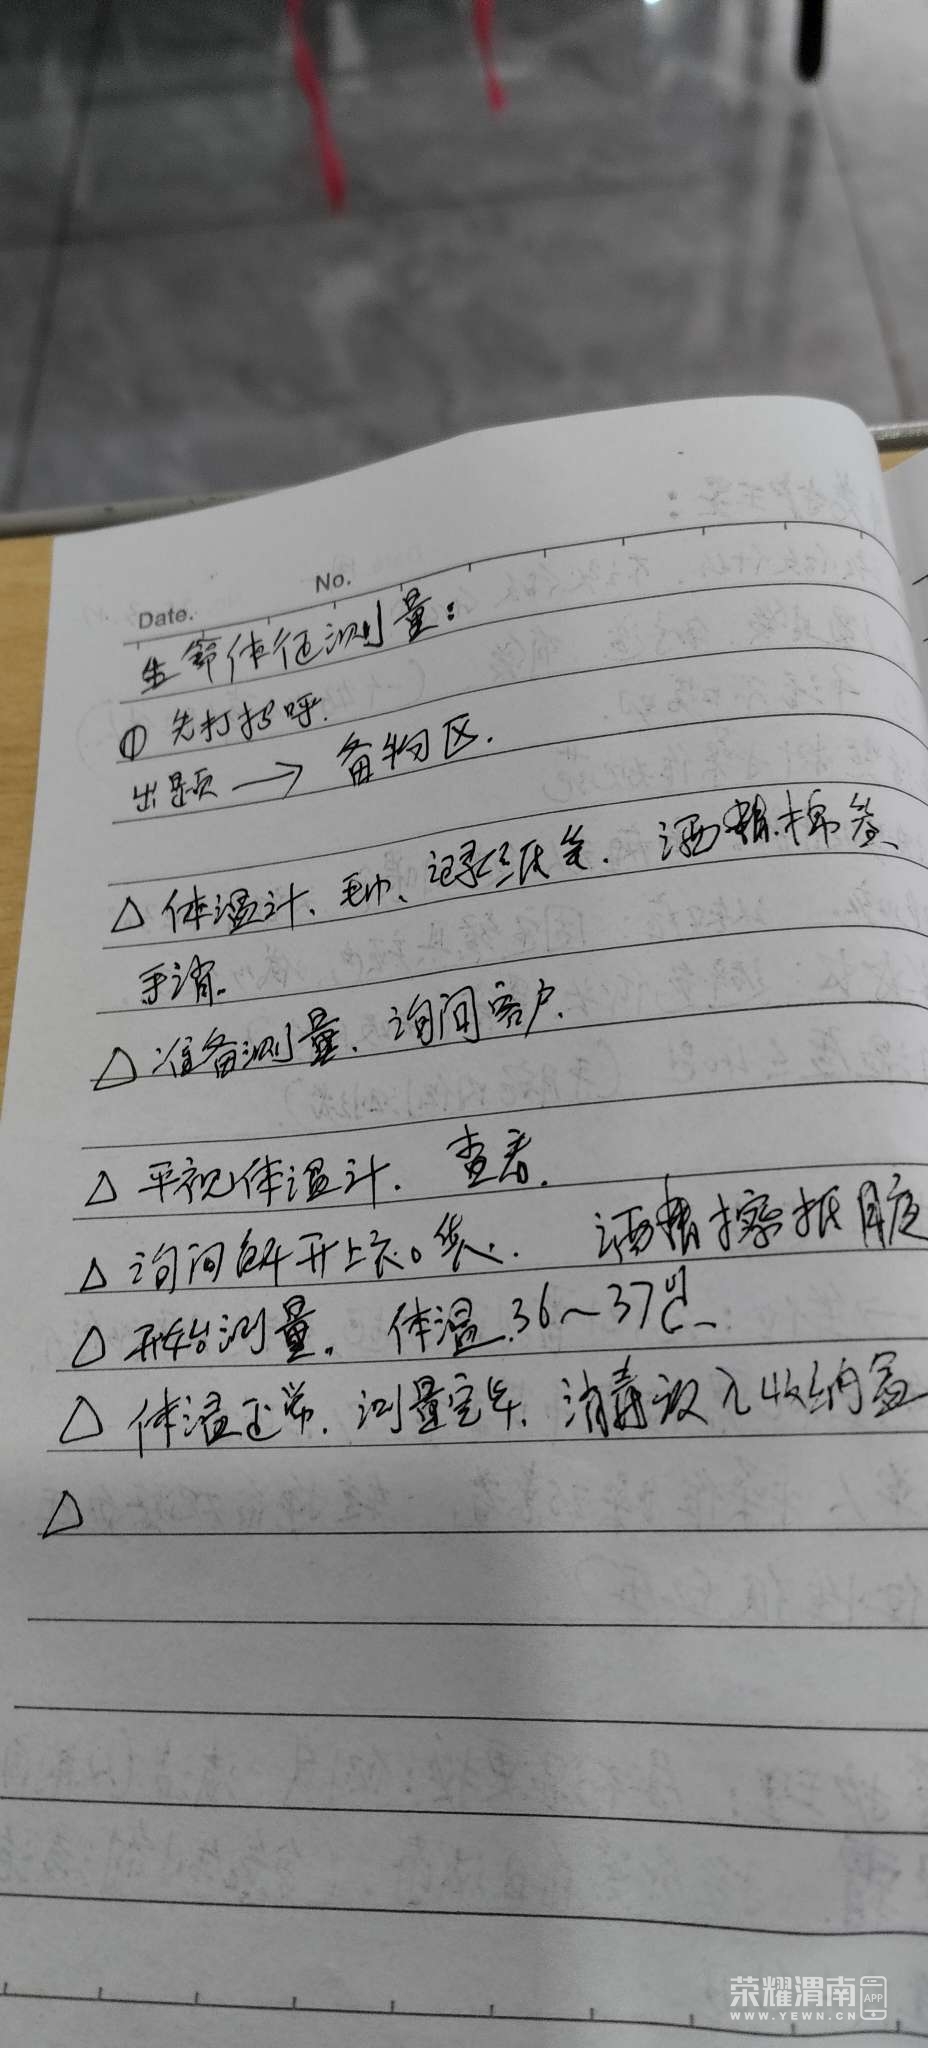 Date.
No.
生命体征测量：
① 先打招呼.
出题 → 备物区.
△ 体温计、毛巾、记录纸笔. 酒精.棉签、
手消.
△ 准备测量. 询问客户.
△ 平视体温计. 查看.
△ 询问解开上衣. 酒精擦拭腋
△ 开始测量. 体温.36~37℃
△ 体温正常. 测量完毕. 消毒放入收纳盒
△
荣耀渭南 APP
WWW.YEWN.CN